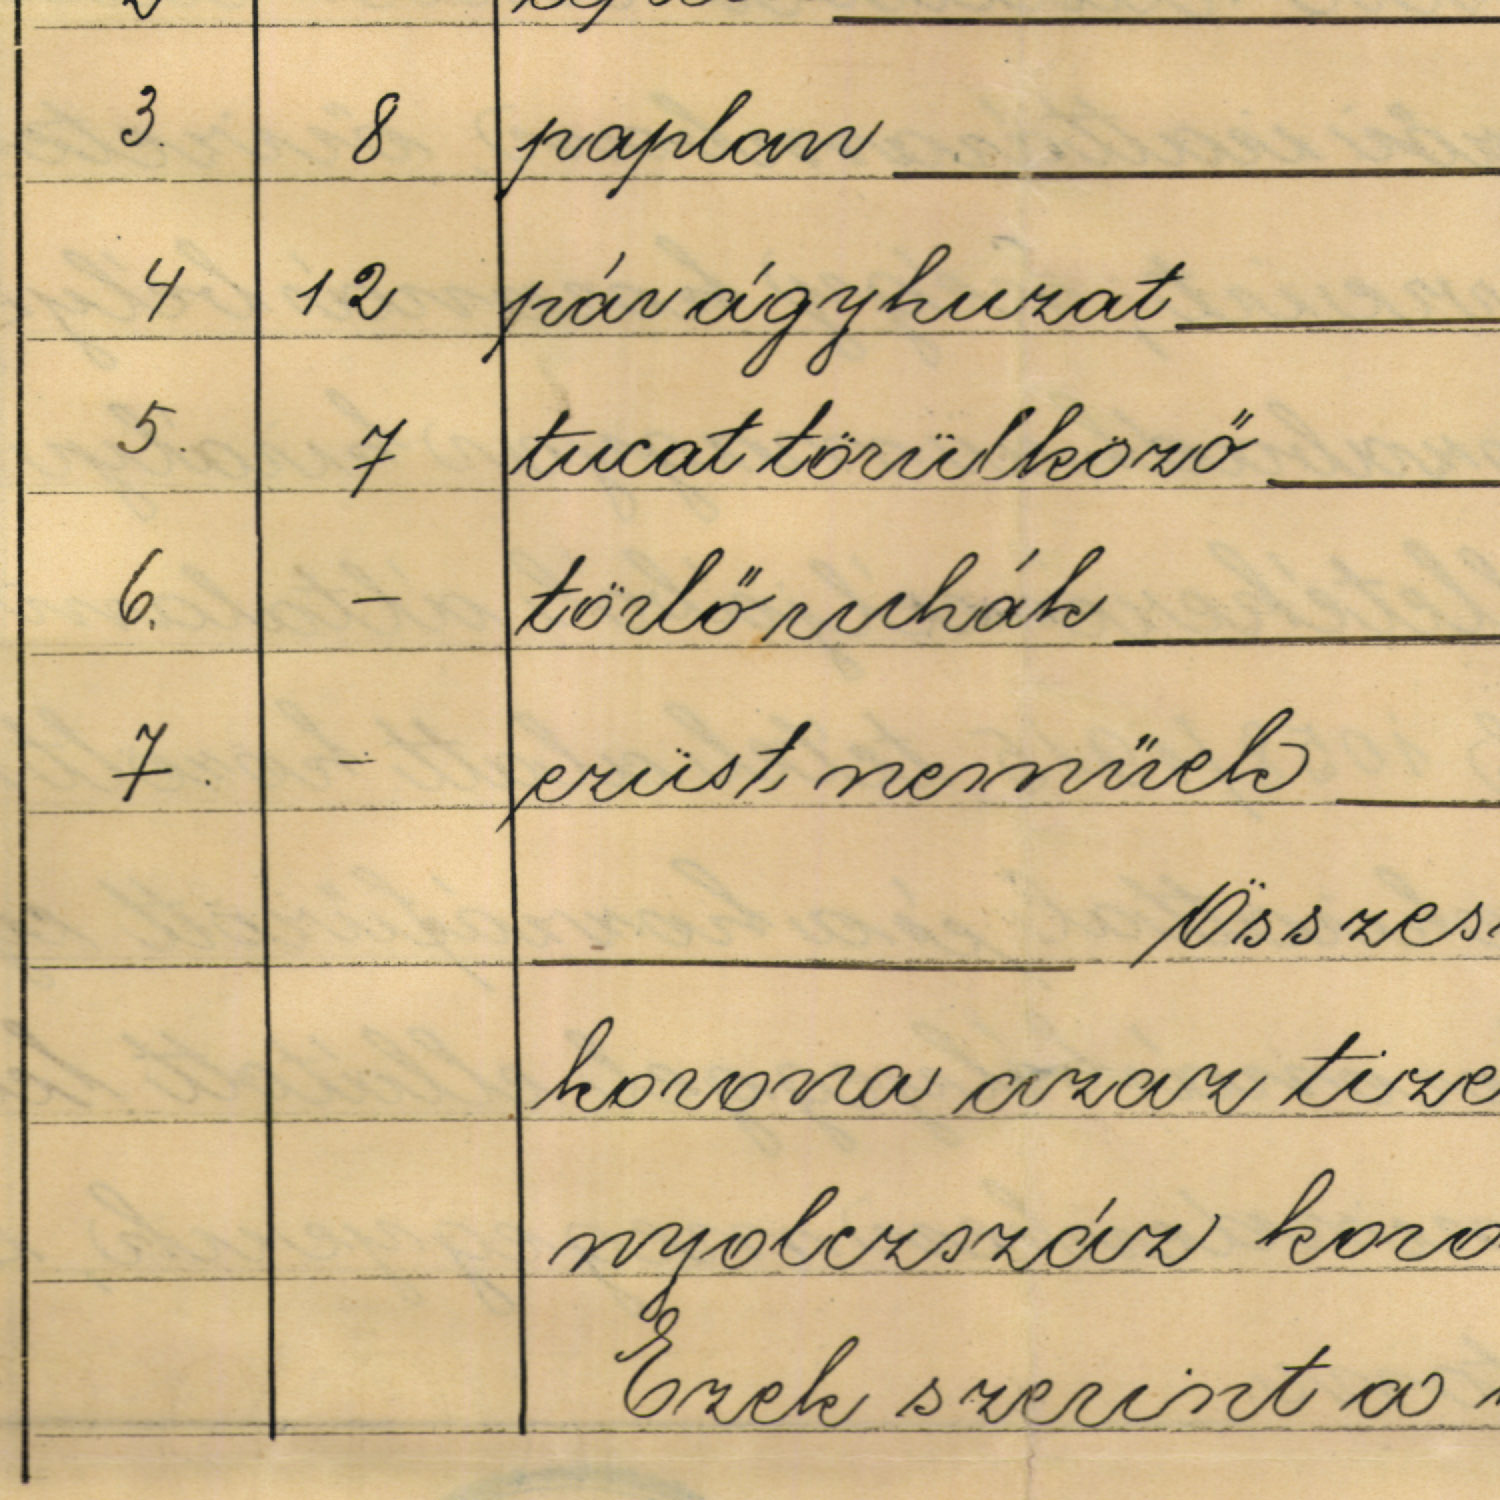 3. 8 paplan
4 12 pár ágyhuzat
5. 7 tucat törülköző
6. - törlő ruhák
7. - ezüst nemüek
Összes
korona azaz tize
nyolczszáz koro
Ezek szerint a